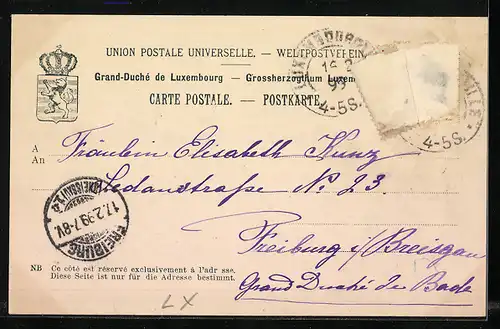 UNION POSTALE UNIVERSELLE. — WELTPOSTVEREIN
Grand-Duché de Luxembourg — Grossherzogthum Luxem
CARTE POSTALE. — POSTKARTE
LUXEMBOURG
16 2
99
4-5S.
VILLE
4-5S.
A
An
Fräulein Elisabeth Kunz
Sedanstraße No 23
Freiburg i/Breisgau
Grand Duché de Bade
FREIBURG
17.2.99.7-8V.
NB Ce côté est réservé exclusivement à l'adr sse.
Diese Seite ist nur für die Adresse bestimmt.
LX